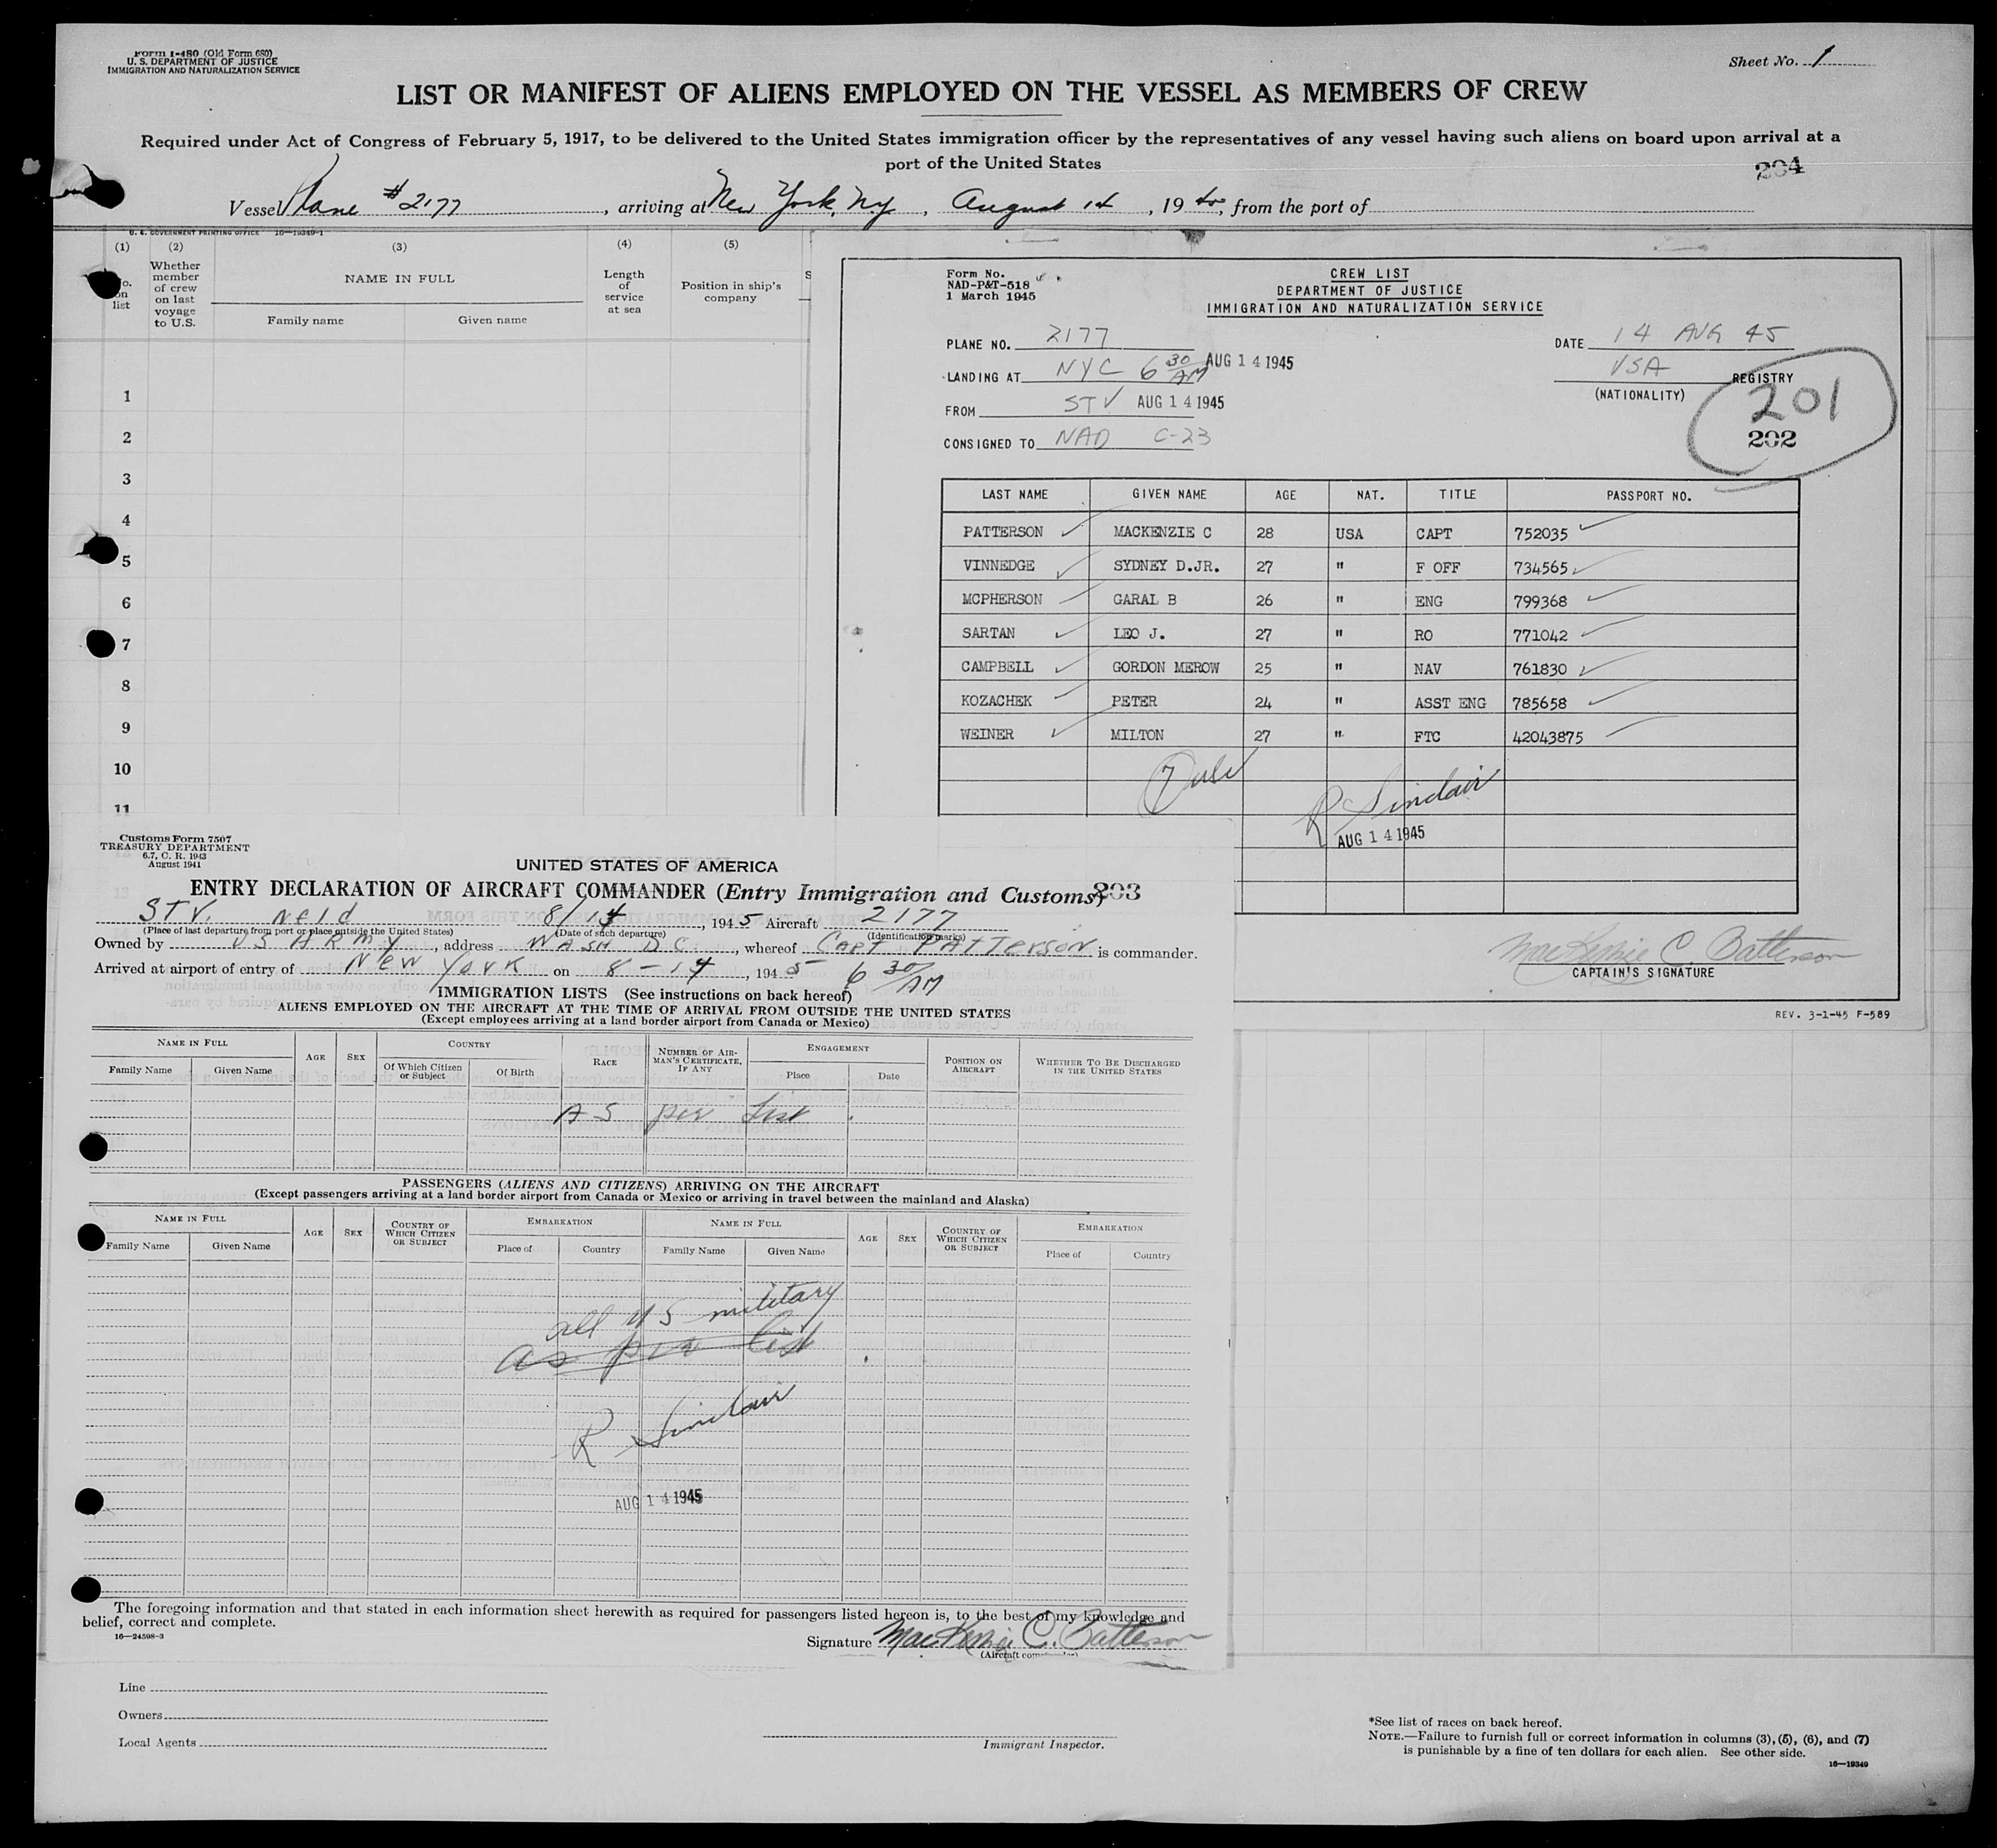 Form I-480 (Old Form 680)
U. S. DEPARTMENT OF JUSTICE
IMMIGRATION AND NATURALIZATION SERVICE
Sheet No. 1
LIST OR MANIFEST OF ALIENS EMPLOYED ON THE VESSEL AS MEMBERS OF CREW
Required under Act of Congress of February 5, 1917, to be delivered to the United States immigration officer by the representatives of any vessel having such aliens on board upon arrival at a
port of the United States
204
Vessel Plane #2177, arriving at New York, NY, August 14, 19 45, from the port of
U. S. GOVERNMENT PRINTING OFFICE 16—19349-1
(1) (2) (3) (4) (5)
No. on list
Whether member of crew on last voyage to U.S.
NAME IN FULL
Family name Given name
Length of service at sea
Position in ship's company
S
1
2
3
4
5
6
7
8
9
10
11
Form No.
NAD-P&T-518
1 March 1945
CREW LIST
DEPARTMENT OF JUSTICE
IMMIGRATION AND NATURALIZATION SERVICE
PLANE NO. 2177
DATE 14 AUG 45
LANDING AT NYC 6 30 AM AUG 14 1945
USA REGISTRY
(NATIONALITY)
FROM STV AUG 14 1945
201
202
CONSIGNED TO NAD C-23
LAST NAME GIVEN NAME AGE NAT. TITLE PASSPORT NO.
PATTERSON MACKENZIE C 28 USA CAPT 752035
VINNEDGE SYDNEY D.JR. 27 " F OFF 734565
MCPHERSON GARAL B 26 " ENG 799368
SARTAN LEO J. 27 " RO 771042
CAMPBELL GORDON MEROW 25 " NAV 761830
KOZACHEK PETER 24 " ASST ENG 785658
WEINER MILTON 27 " FTC 42043875
R Sinclair
AUG 14 1945
MacKenzie C. Patterson
CAPTAIN'S SIGNATURE
REV. 3-1-45 F-589
Customs Form 7507
TREASURY DEPARTMENT
6.7, C. R. 1943
August 1941
UNITED STATES OF AMERICA
ENTRY DECLARATION OF AIRCRAFT COMMANDER (Entry Immigration and Customs)
203
STV. Nfld 8/14, 1945 Aircraft 2177
(Place of last departure from port or place outside the United States) (Date of such departure) (Identification marks)
Owned by US ARMY, address WASH DC, whereof CAPT PATTERSON is commander.
Arrived at airport of entry of New York on 8-14, 1945 6 30 AM
IMMIGRATION LISTS (See instructions on back hereof)
ALIENS EMPLOYED ON THE AIRCRAFT AT THE TIME OF ARRIVAL FROM OUTSIDE THE UNITED STATES
(Except employees arriving at a land border airport from Canada or Mexico)
NAME IN FULL
Family Name Given Name
AGE SEX
COUNTRY
Of Which Citizen or Subject Of Birth
RACE
NUMBER OF AIRMAN'S CERTIFICATE, IF ANY
ENGAGEMENT
Place Date
POSITION ON AIRCRAFT
WHETHER TO BE DISCHARGED IN THE UNITED STATES
AS per List.
PASSENGERS (ALIENS AND CITIZENS) ARRIVING ON THE AIRCRAFT
(Except passengers arriving at a land border airport from Canada or Mexico or arriving in travel between the mainland and Alaska)
NAME IN FULL
Family Name Given Name
AGE SEX
COUNTRY OF WHICH CITIZEN OR SUBJECT
EMBARKATION
Place of Country
NAME IN FULL
Family Name Given Name
AGE SEX
COUNTRY OF WHICH CITIZEN OR SUBJECT
EMBARKATION
Place of Country
all US military
as per list
R Sinclair
AUG 14 1945
The foregoing information and that stated in each information sheet herewith as required for passengers listed hereon is, to the best of my knowledge and
belief, correct and complete.
16—24598-3
Signature MacKenzie C. Patterson
(Aircraft commander)
Line
Owners
Local Agents
Immigrant Inspector.
*See list of races on back hereof.
NOTE.—Failure to furnish full or correct information in columns (3), (5), (6), and (7)
is punishable by a fine of ten dollars for each alien. See other side.
16—19349